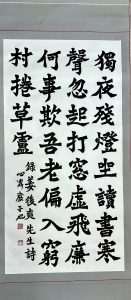 獨夜殘燈坐讀書寒
聲忽起打窓虛飛廉
何事欺吾老偏入窮
村捲草廬
錄姜後爽先生詩